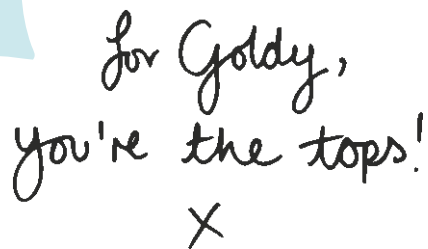 for Goldy,
you're the tops!
x